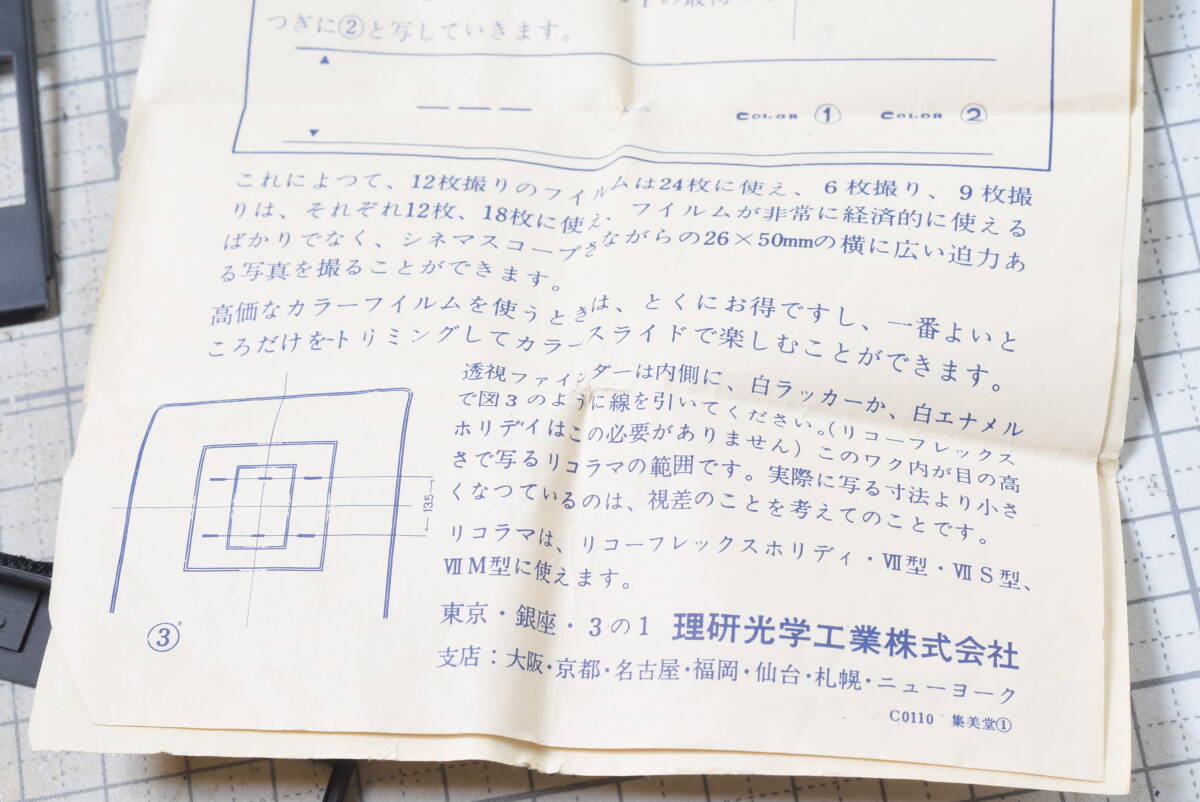 つぎに②と写していきます。
COLOR ① COLOR ②
これによつて、12枚撮りのフイルムは24枚に使え、6枚撮り、9枚撮
りは、それぞれ12枚、18枚に使え、フイルムが非常に経済的に使える
ばかりでなく、シネマスコープさながらの26×50mmの横に広い迫力あ
る写真を撮ることができます。
高価なカラーフイルムを使うときは、とくにお得ですし、一番よいと
ころだけをトリミングしてカラースライドで楽しむことができます。
透視ファインダーは内側に、白ラッカーか、白エナメル
で図3のように線を引いてください。(リコーフレックス
ホリデイはこの必要がありません)このワク内が目の高
さで写るリコラマの範囲です。実際に写る寸法より小さ
くなつているのは、視差のことを考えてのことです。
リコラマは、リコーフレックスホリディ・Ⅶ型・ⅦS型、
ⅦM型に使えます。
13.5
③
東京・銀座・3の1 理研光学工業株式会社
支店:大阪・京都・名古屋・福岡・仙台・札幌・ニューヨーク
C0110 集美堂①